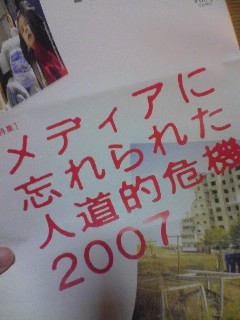 特集1
メディアに
忘れられた
人道的危機
2007